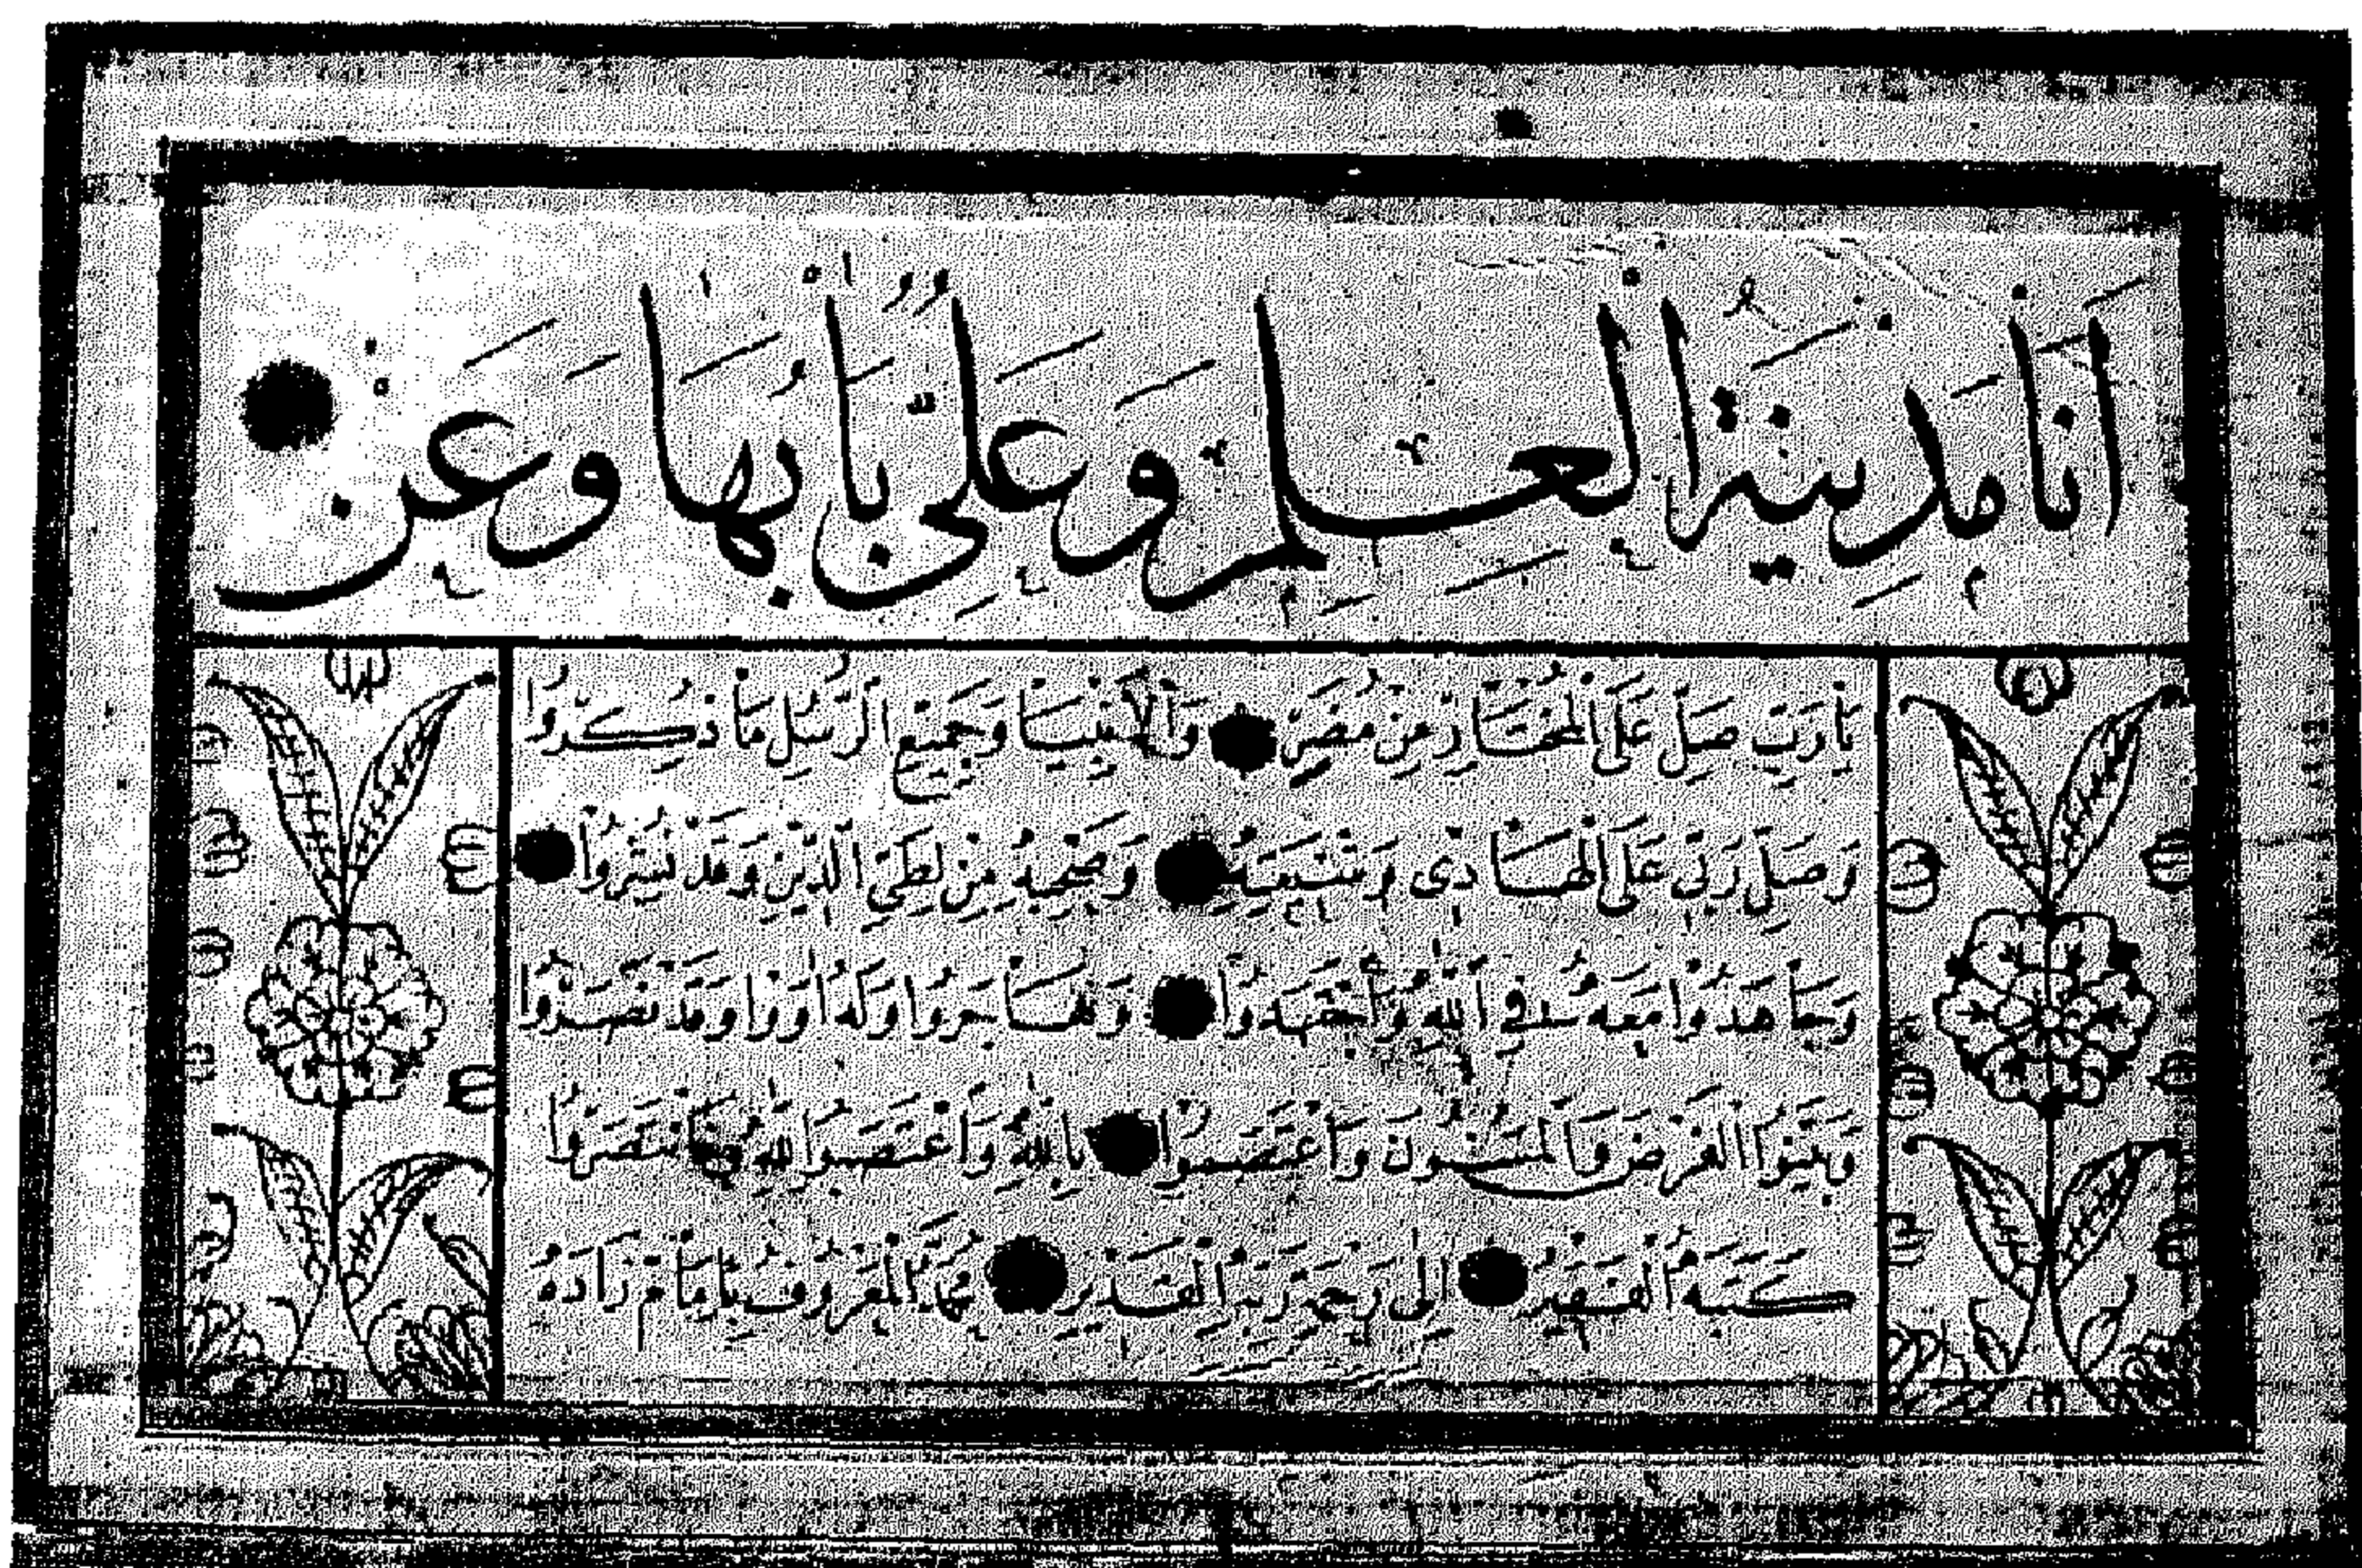 أَنَا مَدِينَةُ الْعِلْمِ وَعَلِيٌّ بَابُهَا وَعَنْ
يَا رَبِّ صَلِّ عَلَى الْمُخْتَارِ مِنْ مُضَرٍ وَالْأَنْبِيَا وَجَمِيعِ الرُّسْلِ مَا ذُكِرُوا
وَصَلِّ رَبِّي عَلَى الْهَادِي وَشِيعَتِهِ وَصَحْبِهِ مِنْ لِطَيِّ الدِّينِ وَقَدْ نَشَرُوا
وَجَاهَدُوا مَعَهُ فِي اللهِ وَاجْتَهَدُوا وَهَاجَرُوا وَلَهُ آوَوْا وَقَدْ نَصَرُوا
وَبَيَّنُوا الْفَرْضَ وَالْمَسْنُونَ وَاعْتَصَمُوا بِاللهِ وَاعْتَصَبُوا لِلّٰهِ وَانْتَصَرُوا
كَتَبَهُ الْفَقِيرُ إِلَى رَحْمَةِ رَبِّهِ الْقَدِيرِ مُحَمَّدُ الْمَعْرُوفُ بِإِمَامْ زَادَهْ